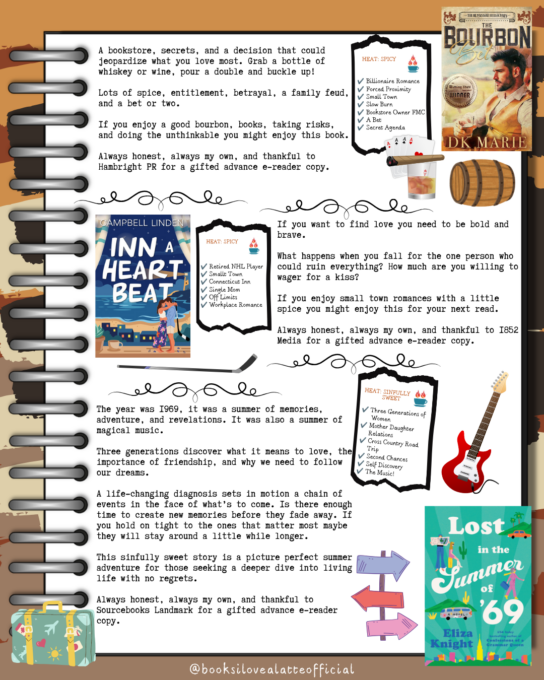 A bookstore, secrets, and a decision that could
jeopardize what you love most. Grab a bottle of
whiskey or wine, pour a double and buckle up!
Lots of spice, entitlement, betrayal, a family feud,
and a bet or two.
If you enjoy a good bourbon, books, taking risks,
and doing the unthinkable you might enjoy this book.
Always honest, always my own, and thankful to
Hambright PR for a gifted advance e-reader copy.
HEAT: SPICY
Billionaire Romance
Forced Proximity
Small Town
Slow Burn
Bookstore Owner FMC
A Bet
Secret Agenda
THE
BOURBON
WINNER
DK MARIE
CAMPBELL LINDEN
INN A
HEART
BEAT
HEAT: SPICY
Retired NHL Player
Small Town
Connecticut Inn
Single Mom
Off Limits
Workplace Romance
If you want to find love you need to be bold and
brave.
What happens when you fall for the one person who
could ruin everything? How much are you willing to
wager for a kiss?
If you enjoy small town romances with a little
spice you might enjoy this for your next read.
Always honest, always my own, and thankful to 1852
Media for a gifted advance e-reader copy.
The year was 1969, it was a summer of memories,
adventure, and revelations. It was also a summer of
magical music.
Three generations discover what it means to love, the
importance of friendship, and why we need to follow
our dreams.
A life-changing diagnosis sets in motion a chain of
events in the face of what's to come. Is there enough
time to create new memories before they fade away. If
you hold on tight to the ones that matter most maybe
they will stay around a little while longer.
This sinfully sweet story is a picture perfect summer
adventure for those seeking a deeper dive into living
life with no regrets.
Always honest, always my own, and thankful to
Sourcebooks Landmark for a gifted advance e-reader
copy.
HEAT: SINFULLY
SWEET
Three Generations of
Women
Mother Daughter
Relations
Cross Country Road
Trip
Second Chances
Self Discovery
The Music!
Lost
in the
Summer
of
'69
Eliza
Knight
@booksilovealatteofficial